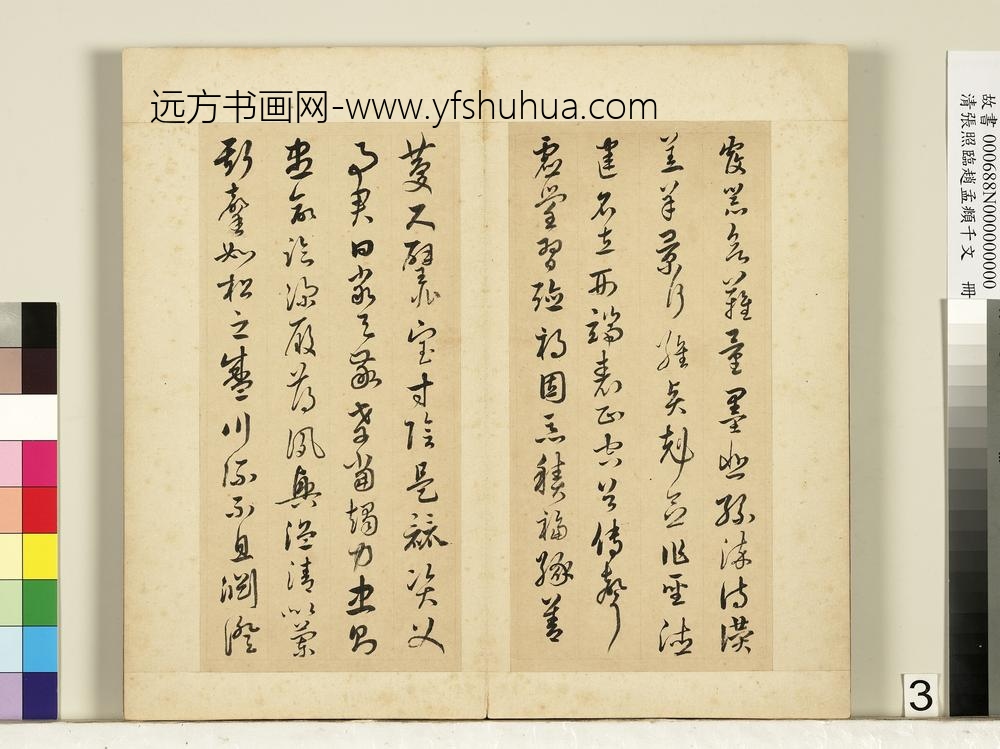 远方书画网-www.yfshuhua.com
覆器欲難量墨悲絲染詩讚
羔羊景行維賢剋念作聖德
建名立形端表正空谷傳聲
虛堂習聽禍因惡積福緣善
慶尺璧非寶寸陰是競資父
事君曰嚴與敬孝當竭力忠則
盡命臨深履薄夙興溫清似蘭
斯馨如松之盛川流不息淵澄
故書000688N000000000
清張照臨趙孟頫千文 冊
3